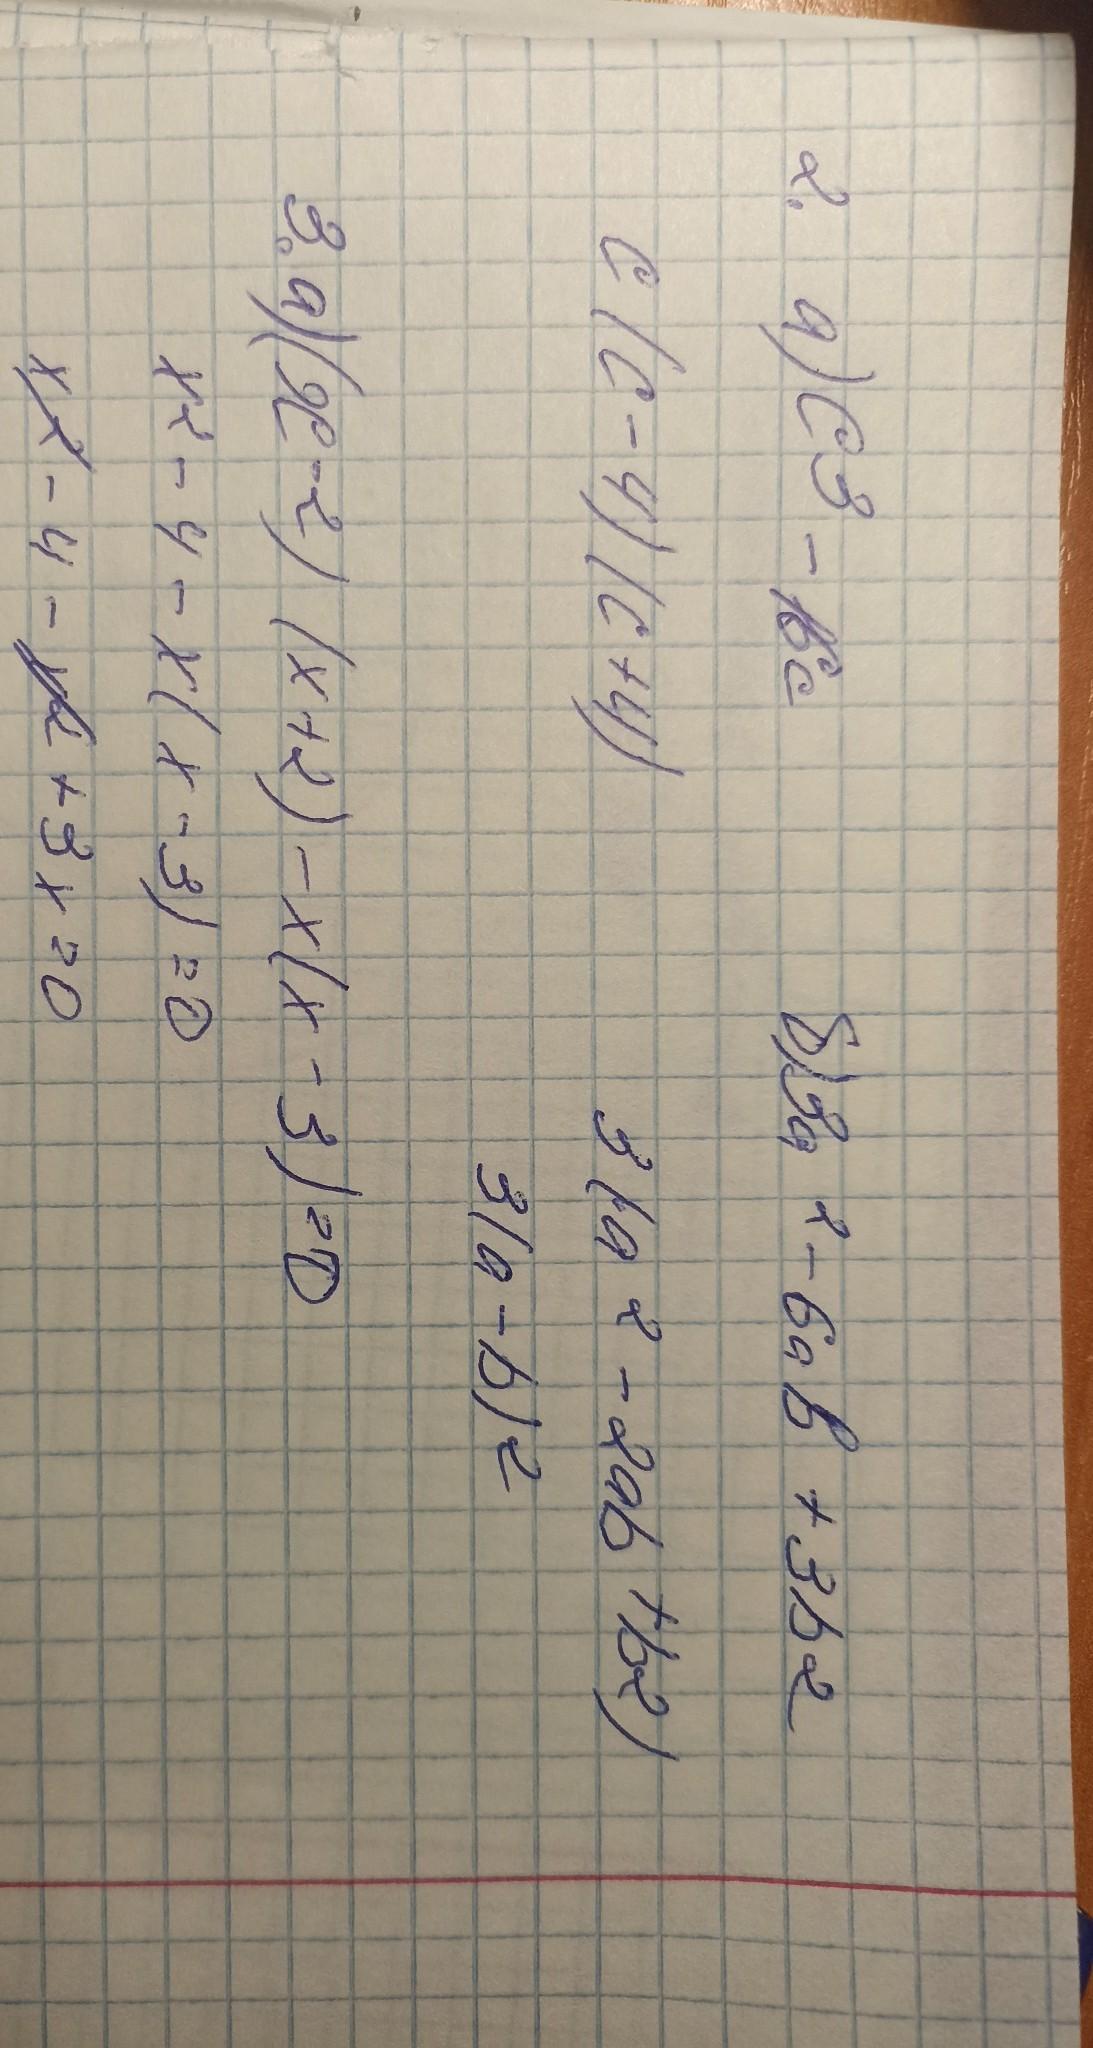 2. а) c3 - 16c
б) 3a2 - 6ab + 3b2
c(c-4)(c+4)
3(a2 - 2ab + b2)
3(a-b)2
3. а) (x-2)(x+2) - x(x-3)=0
x2 - 4 - x(x-3)=0
x2 - 4 - x2 + 3x=0